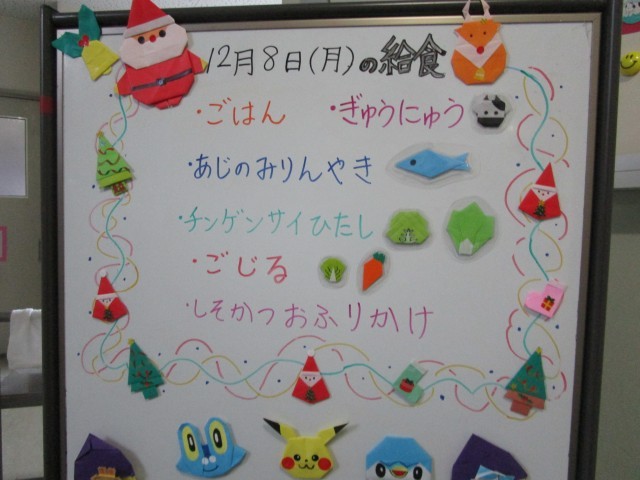 12月8日(月)の給食
・ごはん ・ぎゅうにゅう
・あじのみりんやき
・チンゲンサイひたし
・ごじる
・しそかつおふりかけ